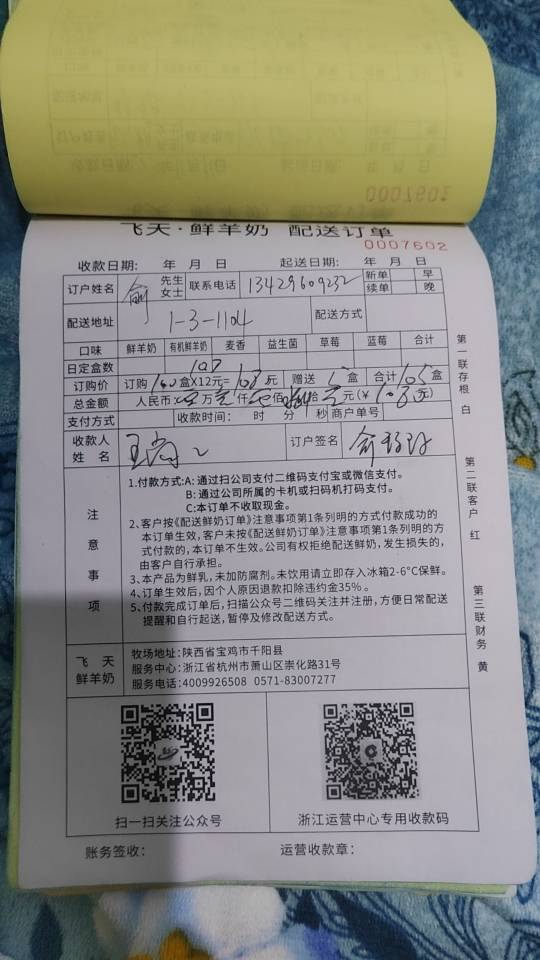 飞天·鲜羊奶 配送订单
0007602
收款日期: 年 月 日 起送日期: 年 月 日
订户姓名 俞 先生 女士 联系电话 13429609232 新单 早
续单 晚
配送地址 1-3-1104 配送方式
口味 鲜羊奶 有机鲜羊奶 麦香 益生菌 草莓 蓝莓 合计
日定盒数
订购价 订购 盒X12元= 元 赠送 盒 合计 105 盒
总金额 人民币 万 仟 佰 拾 元(￥ 元)
支付方式 收款时间: 时 分 秒 商户单号
收款人姓名 订户签名 俞
注意事项
1.付款方式:A:通过扫公司支付二维码支付宝或微信支付。
B:通过公司所属的卡机或扫码机打码支付。
C:本订单不收取现金。
2、客户按《配送鲜奶订单》注意事项第1条列明的方式付款成功的
本订单生效，客户未按《配送鲜奶订单》注意事项第1条列明的方
式付款的，本订单不生效。公司有权拒绝配送鲜奶，发生损失的，
由客户自行承担。
3、本产品为鲜乳，未加防腐剂。未饮用请立即存入冰箱2-6°C保鲜。
4、订单生效后，因个人原因退款扣除违约金35%。
5、付款完成订单后，扫描公众号二维码关注并注册，方便日常配送
提醒和自行起送，暂停及修改配送方式。
飞天
鲜羊奶
牧场地址:陕西省宝鸡市千阳县
服务中心:浙江省杭州市萧山区崇化路31号
服务电话:4009926508 0571-83007277
扫一扫关注公众号 浙江运营中心专用收款码
账务签收: 运营收款章:
第一联存根 白
第二联客户 红
第三联财务 黄